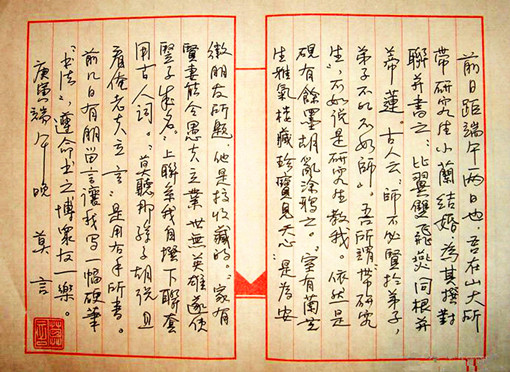 前日距端午两日也,吾在山大所
带研究生小蘭结婚,為其撰對
聯并書之:比翼雙飛燕,同根并
蒂蓮。古人云:師不必賢於弟子,
弟子不必不如師。吾所謂带研究
生,不如说是研究生教我。依然是
硯有餘墨胡亂涂鸦之:"室有蘭芝
生雅氣,楼藏珍寶見天心",是為安
徽朋友所题,他是搞收藏的。"家有
賢妻能令愚夫立業,世無英雄遂使
豎子成名",上聯系我自撰,下聯套
用古人词。"莫聽那孫子胡说,且
看俺老夫立言",是用右手所書。
前几日有朋留言讓我写一幅硬筆
"書法",遵命書之,博衆友一樂。
庚寅端午晚 莫言